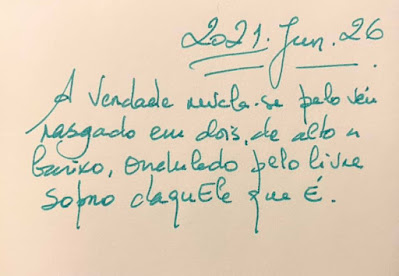 2021. Jun. 26
A verdade revela-se pelo véu
rasgado em dois, de alto a
baixo, ondulado pelo livre
sopro daquEle que É.